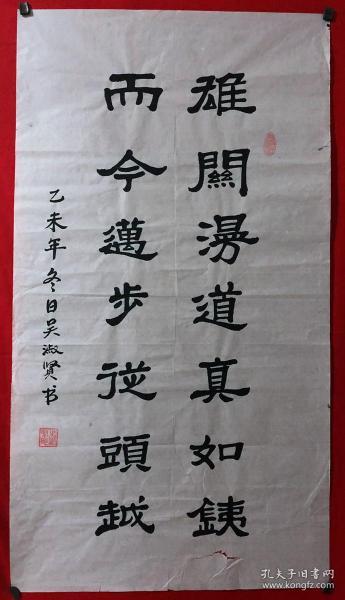 雄關漫道真如鐵
而今邁步從頭越
乙未年冬日吴淑贤书
孔夫子旧书网
www.kongfz.com